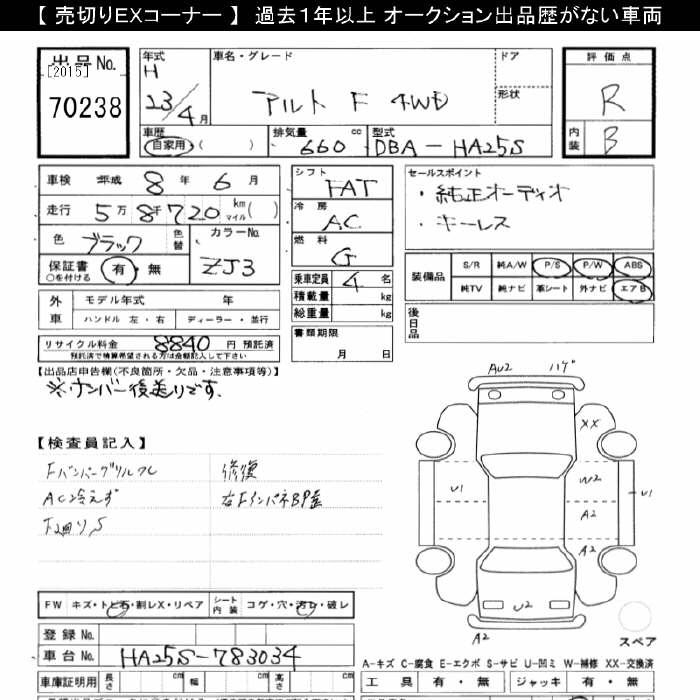 【 売切りEXコーナー 】 過去1年以上 オークション出品歴がない車両
出品No.
[2015]
70238
年式
H
23/4月
車名・グレード
アルト F 4WD
ドア
形状
評価点
R
内装
B
車歴
自家用・( )
排気量
660 cc
型式
DBA-HA25S
車検 平成 8 年 6 月
走行 5万 8千 720 km マイル ( )
色 ブラック 色替
カラーNo.
ZJ3
保証書 有・無
○を付ける
外車
モデル年式 年
ハンドル 左・右 ディーラー・並行
リサイクル料金 8840 円 預託済
預託済で積算希望される方は金額記入して下さい
シフト
FAT
冷房
AC
燃料
G
乗車定員 4 名
積載量 kg
総重量 kg
書類期限
月 日
セールスポイント
・純正オーディオ
・キーレス
装備品
S/R 純A/W P/S P/W ABS
純TV 純ナビ 革シート 外ナビ エアB
後日品
【出品店申告欄(不良箇所・欠品・注意事項等)】
※ナンバー後送りです.
【検査員記入】
Fバンパーグリルワレ
AC冷えず
下廻りS
修復
右FインパネBP歪
AU2 ハゲ
XX
W2
U1
U1
A2
A2
U2
A2
スペア
FW キズ・トビ石・割レX・リペア
シート内装 コゲ・穴・汚レ・破レ
登録No.
車台No. HA25S-783034
車庫証明用 長さ cm 幅 cm 高さ cm
A-キズ C-腐食 E-エクボ S-サビ U-凹ミ W-補修 XX-交換済
工具 有・無 ジャッキ 有・無